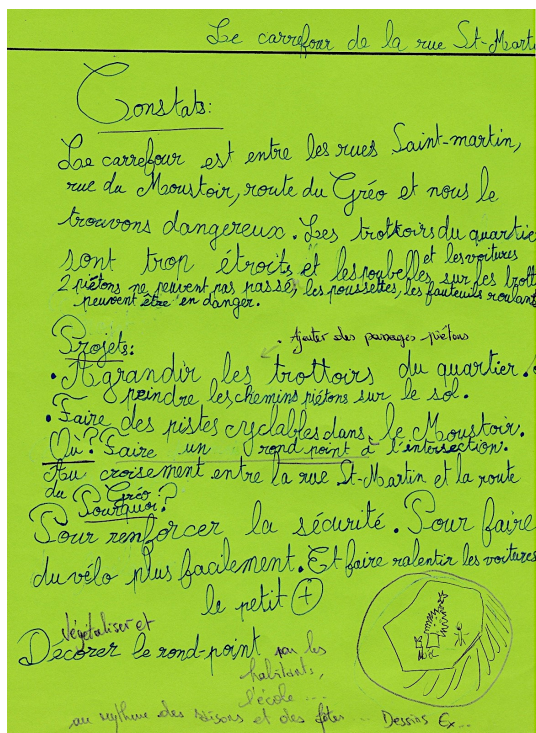 Le carrefour de la rue St-Mart
Constats:
Le carrefour est entre les rues Saint-martin,
rue du Moustoir, route du Gréo et nous le
trouvons dangereux. Les trottoirs du quartie
sont trop étroits et les poubelles et les voitures sur les trott
2 piétons ne peuvent pas passé, les poussettes, les fauteuils roulant
peuvent être en danger.
Projets:
Ajouter des passages piétons
• Agrandir les trottoirs du quartier.
peindre les chemins piétons sur le sol.
• Faire des pistes cyclables dans le Moustoir.
Où? Faire un rond point à l'intersection.
Au croisement entre la rue St-Martin et la route
du Gréo?
Pourquoi?
Pour renforcer la sécurité. Pour faire
du vélo plus facilement. Et faire ralentir les voitures
le petit +
Végétaliser et
Décorer le rond-point par les
habitants,
l'école...
au rythme des saisons et des fêtes... Dessins Ex...